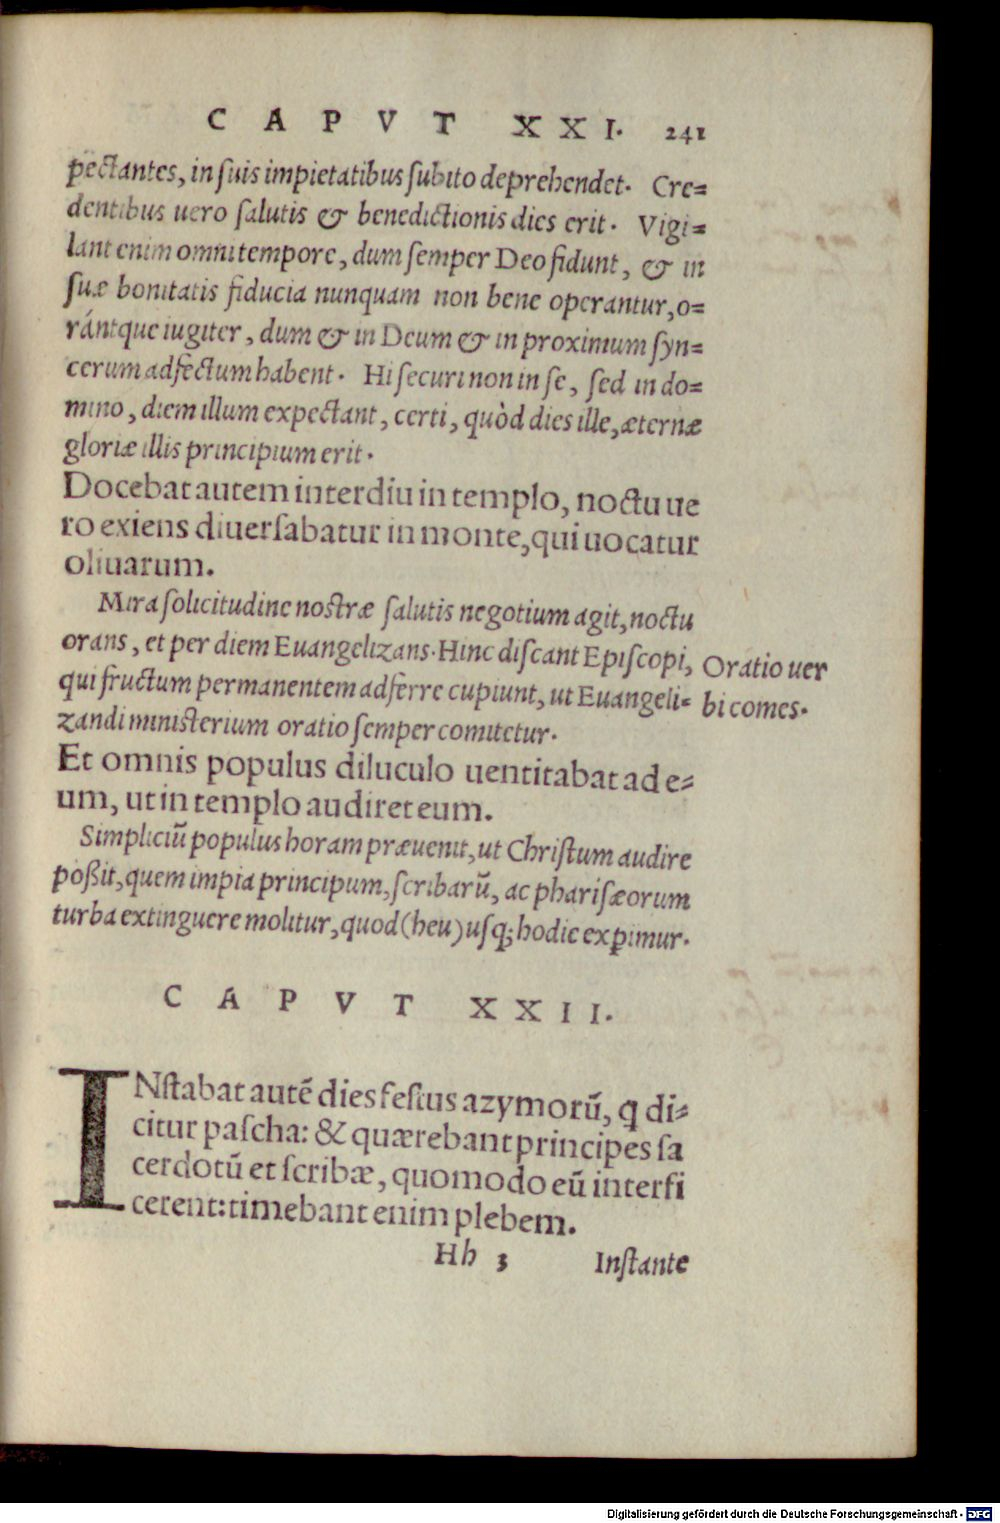 CAPVT XXI. 241
pectantes, in suis impietatibus subito deprehendet. Cre=
dentibus uero salutis & benedictionis dies erit. Vigi=
lant enim omni tempore, dum semper Deo fidunt, & in
suæ bonitatis fiducia nunquam non bene operantur, o=
rántque iugiter, dum & in Deum & in proximum syn=
cerum adfectum habent. Hi securi non in se, sed in do=
mino, diem illum expectant, certi, quòd dies ille, æternæ
gloriæ illis principium erit.
Docebat autem interdiu in templo, noctu ue
ro exiens diuersabatur in monte, qui uocatur
oliuarum.
Mira solicitudine nostræ salutis negotium agit, noctu
orans, et per diem Euangelizans. Hinc discant Episcopi,
qui fructum permanentem adferre cupiunt, ut Euangeli=
zandi ministerium oratio semper comitetur.
Oratio uer
bi comes.
Et omnis populus diluculo uentitabat ad e=
um, ut in templo audiret eum.
Simpliciũ populus horam præuenit, ut Christum audire
poßit, quem impia principum, scribarũ, ac pharisæorum
turba extinguere molitur, quod (heu) usq; hodie experimur.
CAPVT XXII.
INstabat autẽ dies festus azymorũ, q di=
citur pascha: & quærebant principes sa
cerdotũ et scribæ, quomodo eũ interfi
cerent: timebant enim plebem.
Hh 3 Instante
Digitalisierung gefördert durch die Deutsche Forschungsgemeinschaft - DFG